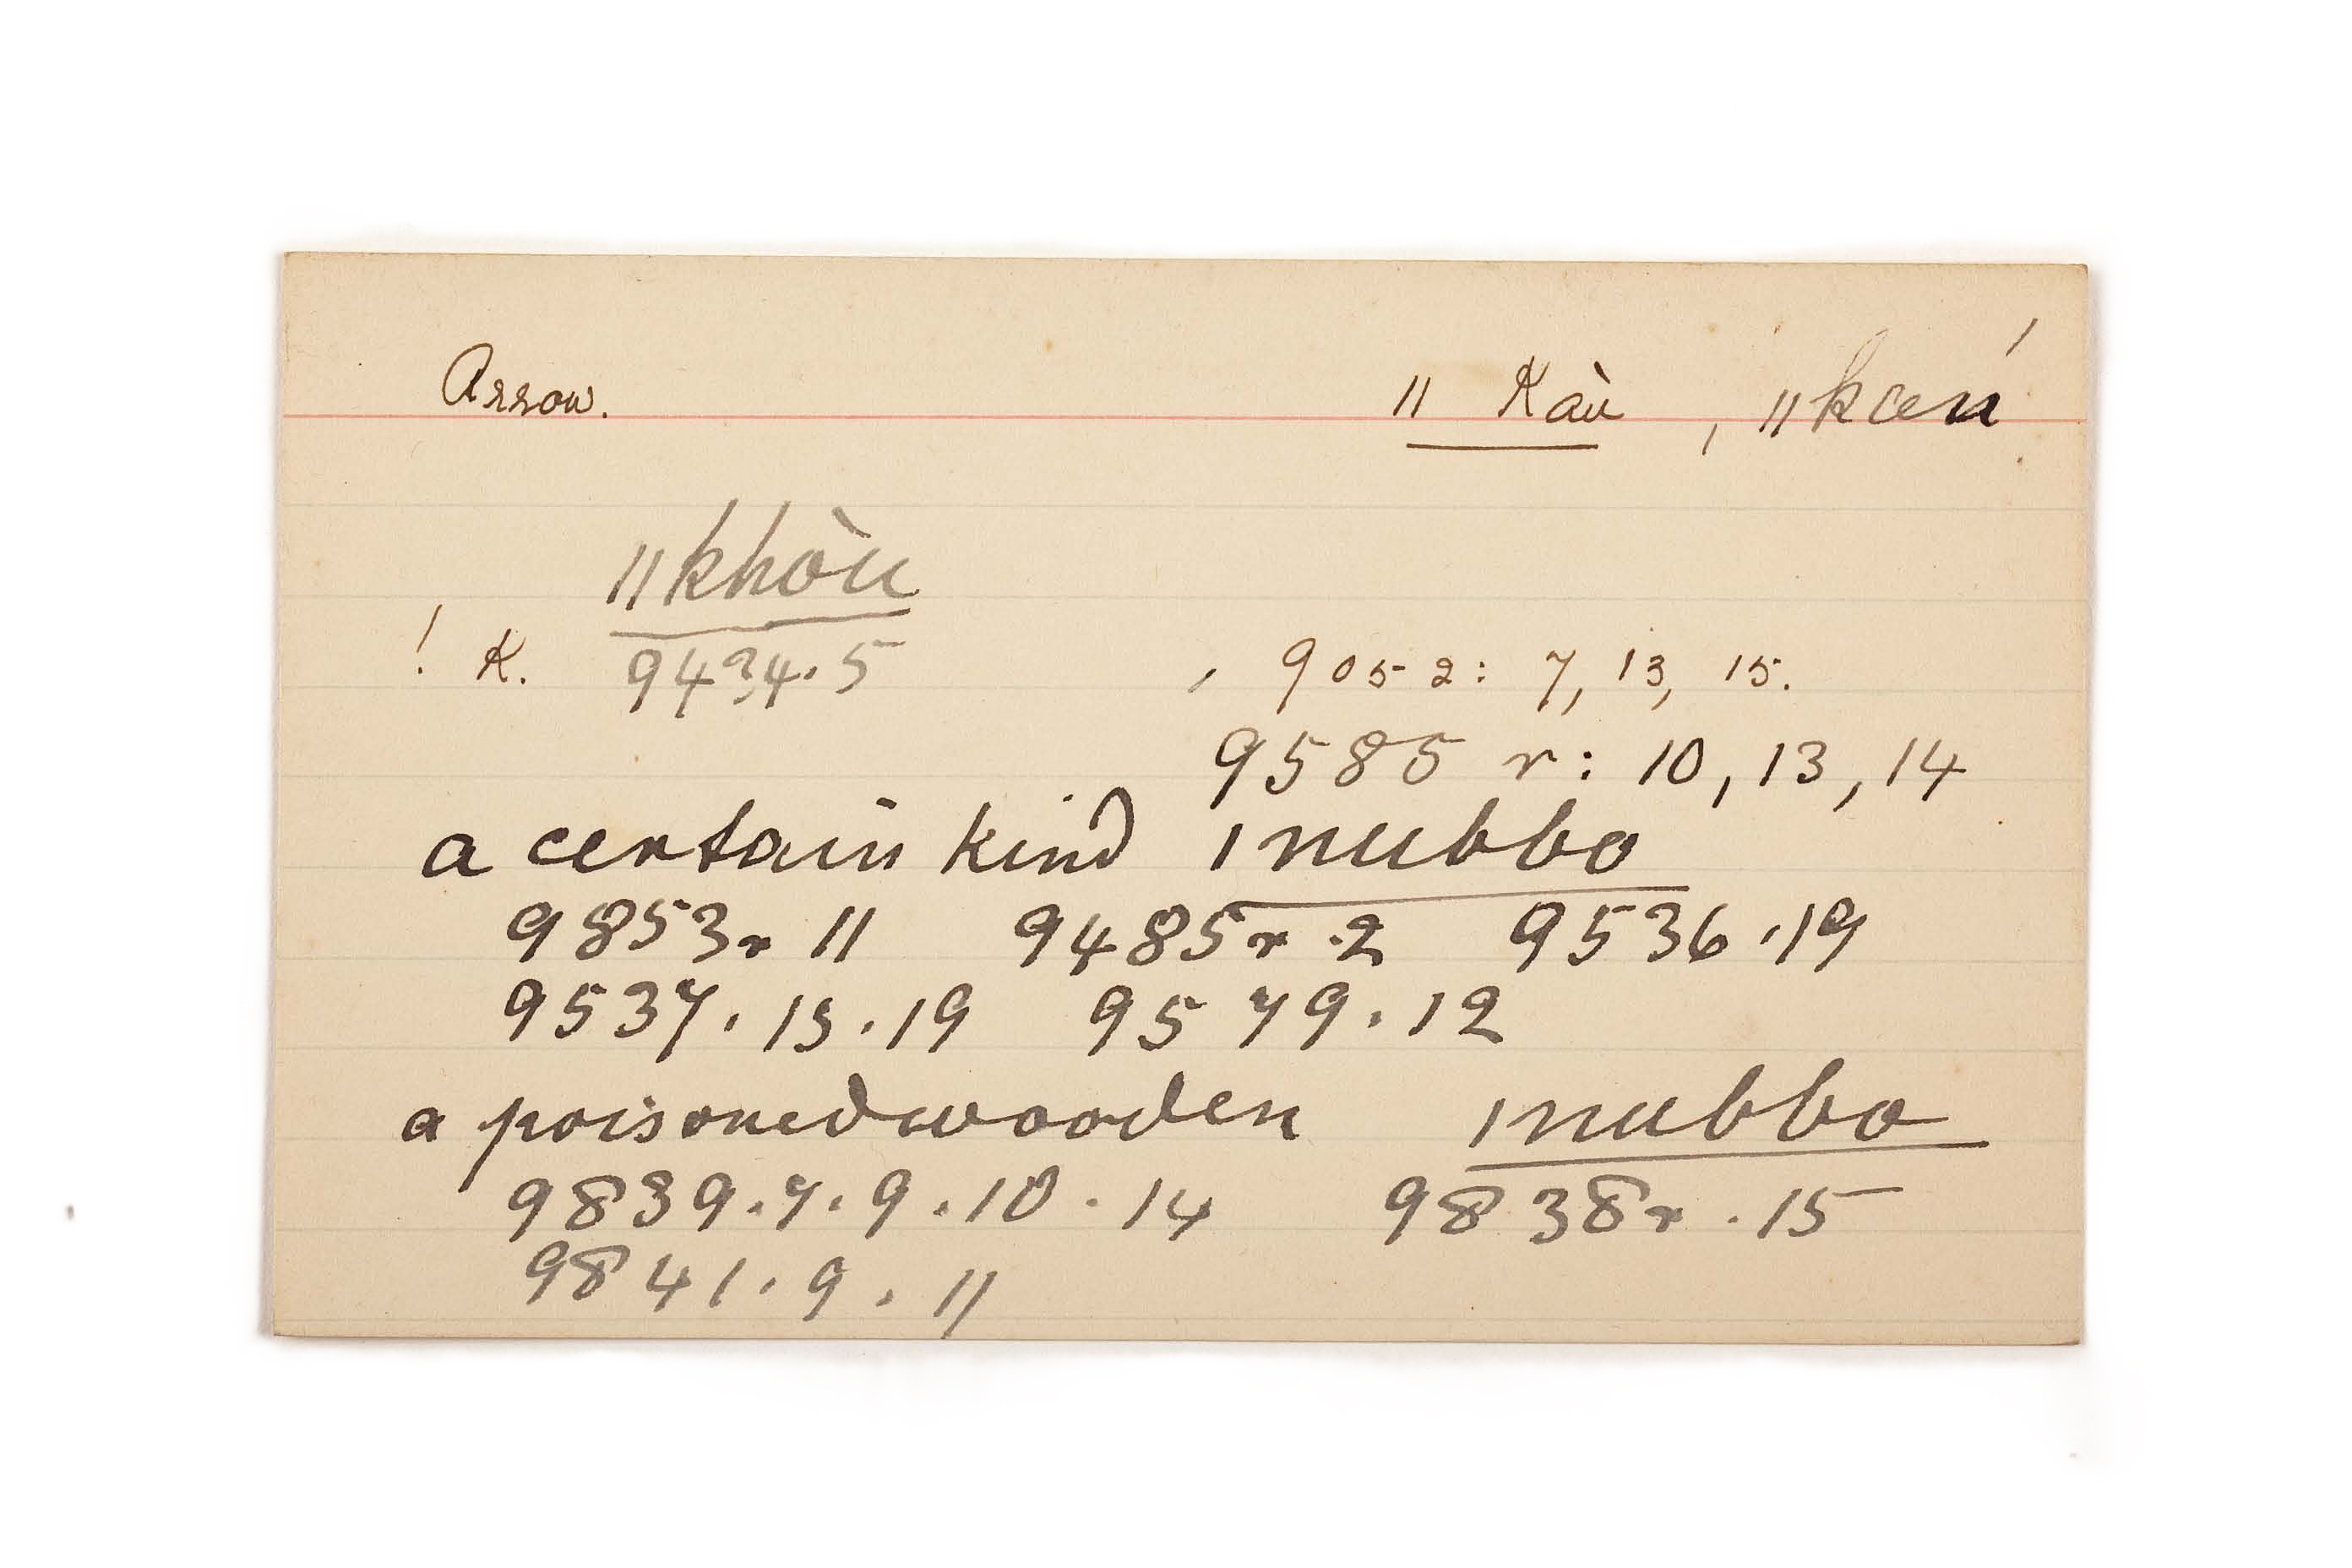 Arrow. ǁ Kàu , ǁkaú
ǁkhòu
! K. 9434.5 , 9052: 7, 13, 15.
9585 r: 10, 13, 14
a certain kind ǀnubbo
9853r 11 9485r.2 9536.19
9537.13.19 9579.12
a poisoned wooden ǀnubbo
9839.7.9.10.14 9838r.15
9841.9.11